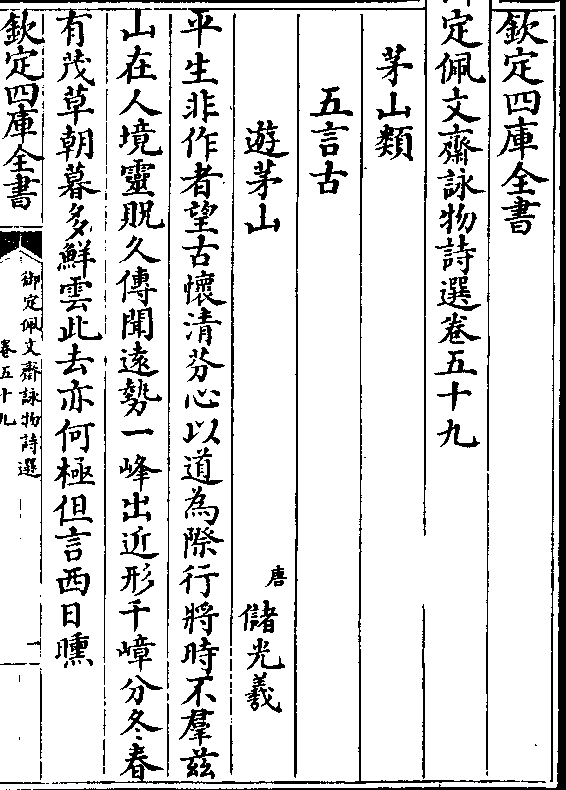 欽定四庫全書
定佩文齋詠物詩選卷五十九
茅山類
五言古
遊茅山
唐 儲光羲
平生非作者望古懷清芬心以道為際行將時不羣茲
山在人境靈貺久傳聞遠勢一峰出近形千嶂分冬春
有茂草朝暮多鮮雲此去亦何極但言西日曛
欽定四庫全書
御定佩文齋詠物詩選
卷五十九
一